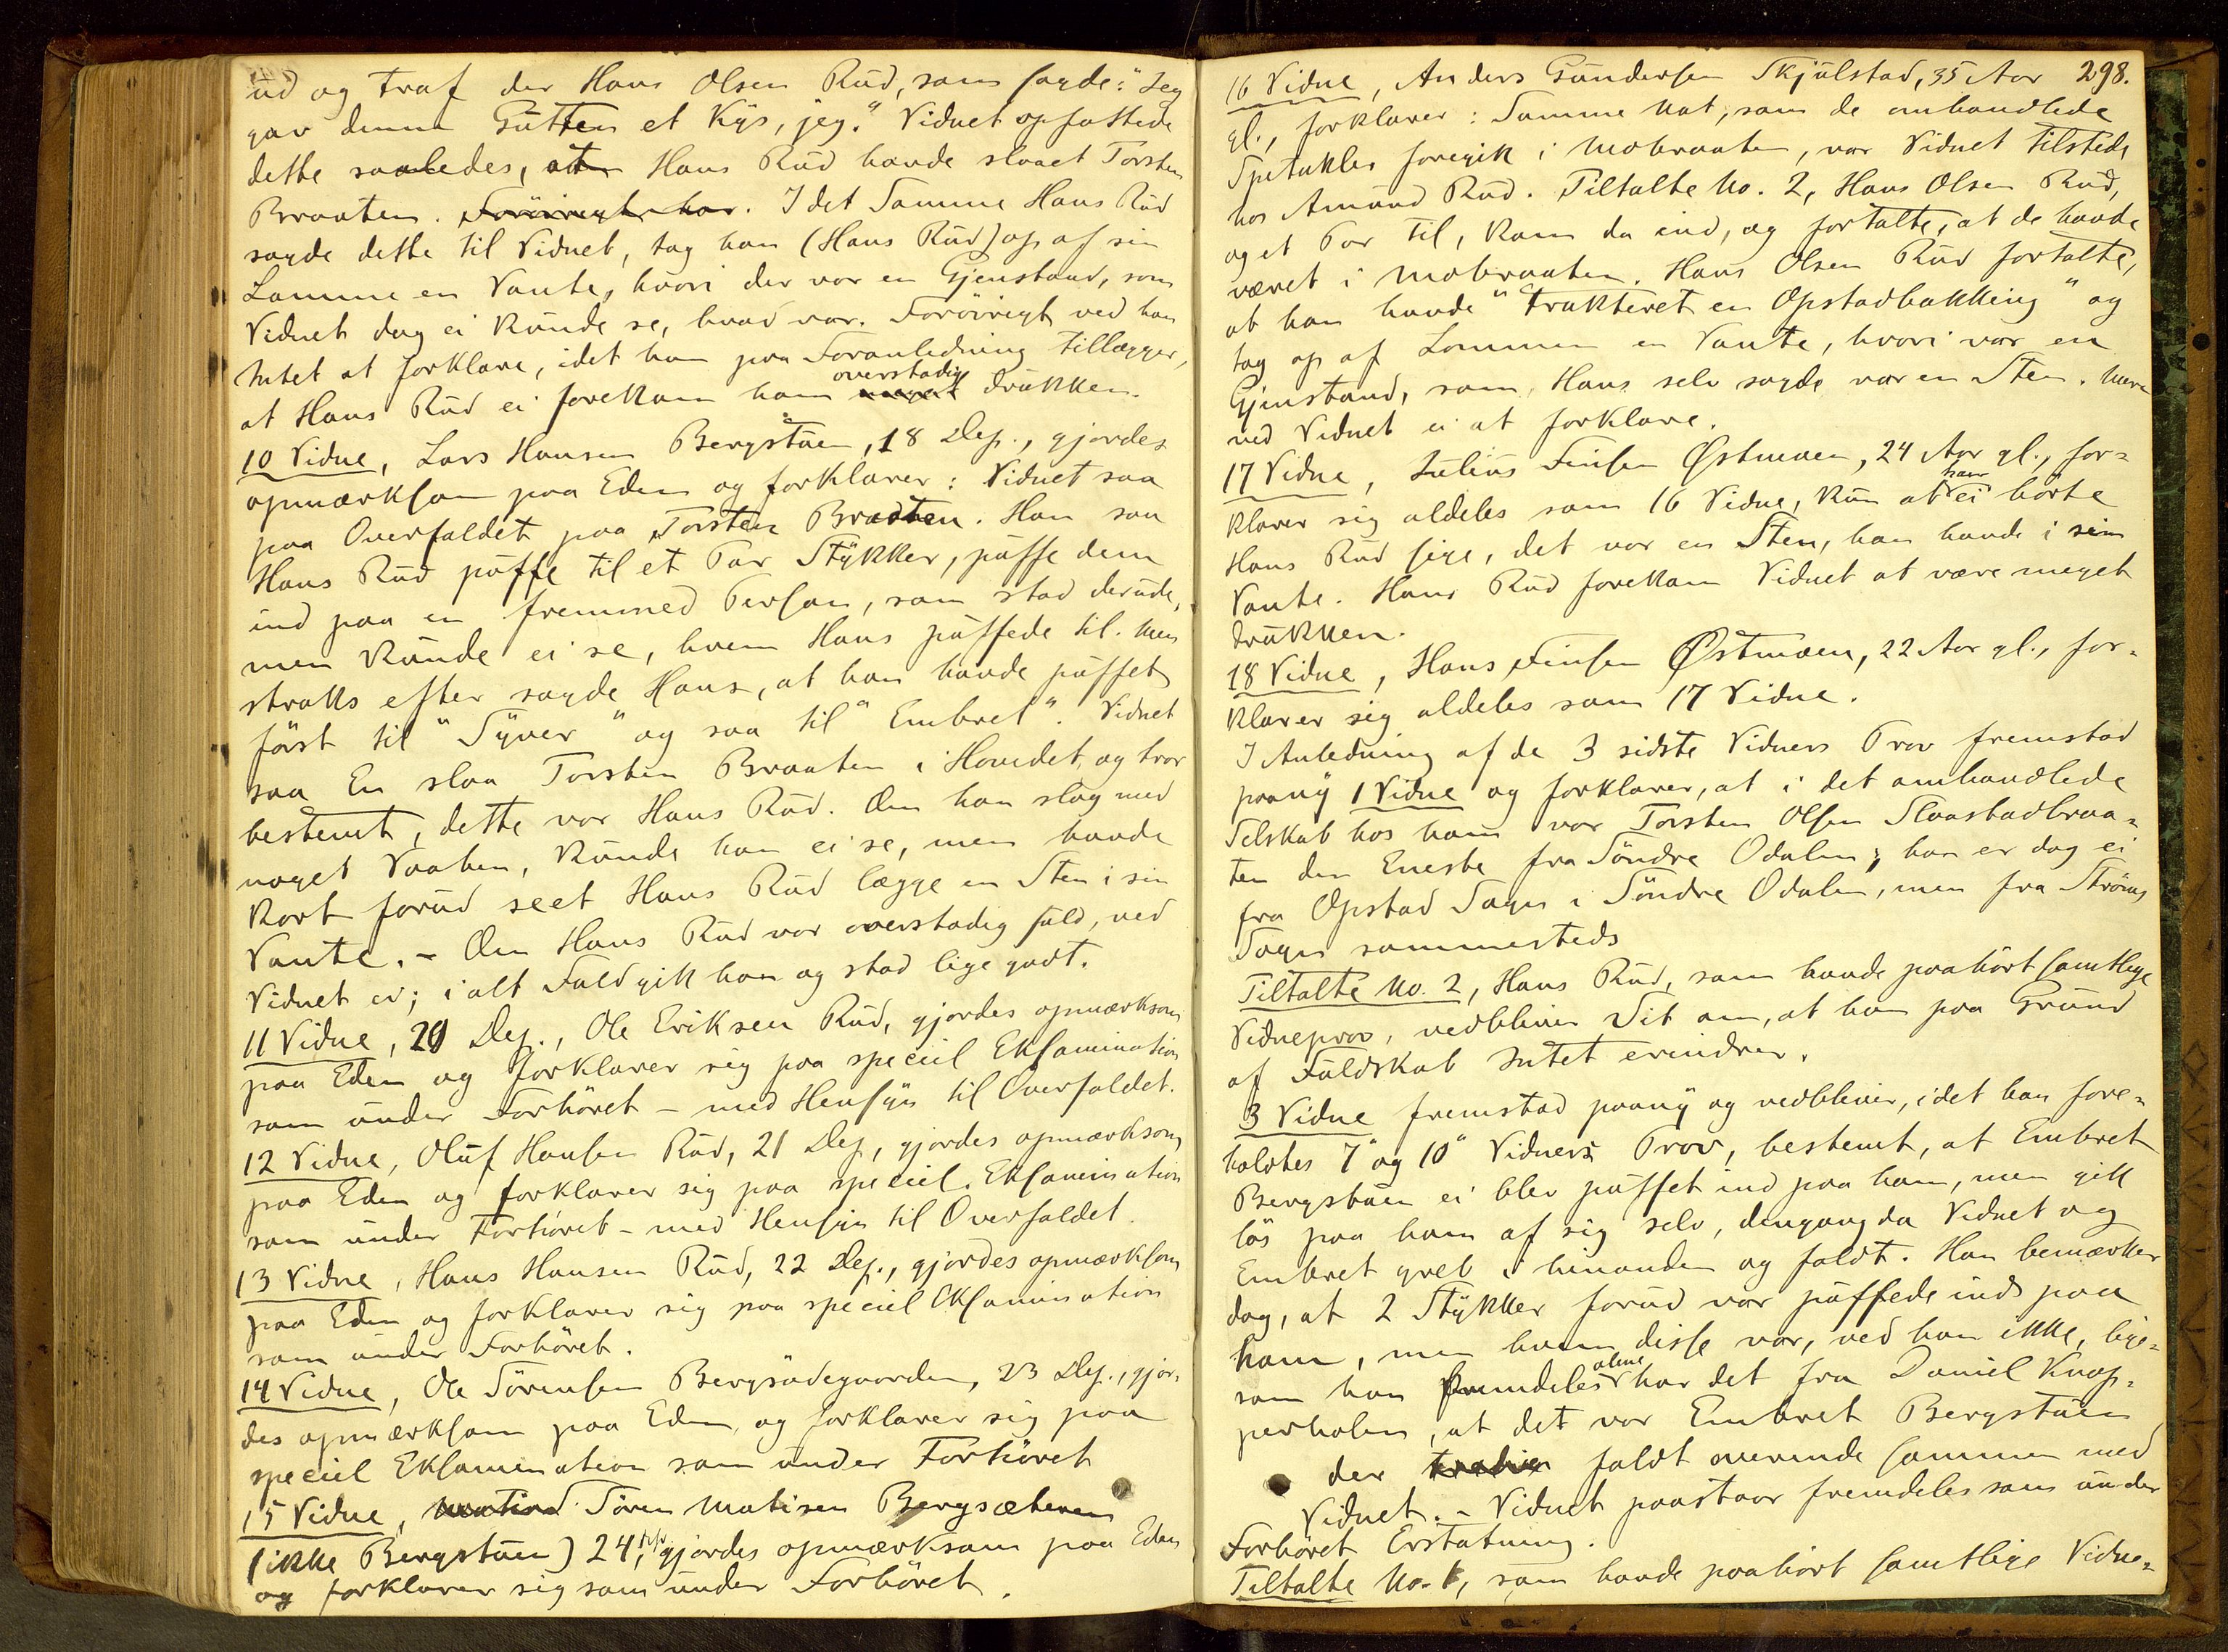 ud og traf der Hans Olsen Rud, som sagde: "Jeg
gav denne Gutten et Kys, jeg." Vidnet opfattede
dette saaledes, at Hans Rud havde slaaet Torsten
Braaten. Forövrigt har. I det Samme Hans Rud
sagde dette til Vidnet, tog han (Hans Rud) op af sin
Lomme en Vante, hvori der var en Gjenstand, som
Vidnet dog ei kunde se, hvad var. Forövrigt ved han
Intet at forklare, idet han paa Foranledning tillægger,
at Hans Rud ei forekom ham meget overstadig drukken.
10 Vidne, Lars Hansen Bergstuen, 18 Dep., gjordes
opmærksom paa Eden og forklarer: Vidnet saa
paa Overfaldet paa Torsten Braaten. Han saa
Hans Rud puffe til et Par Stykker, puffe dem
ind paa en fremmed Person, som stod derude,
men kunde ei se, hvem Hans puffede til. Men
straks efter sagde Hans, at han havde puffet
först til "Syver" og saa til "Embret". Vidnet
saa En slaa Torsten Braaten i Hovedet, og tror
bestemt, dette var Hans Rud. Om han slog med
noget Vaaben, kunde han ei se, men havde
kort forud seet Hans Rud lægge en Sten i sin
Vante. - Om Hans Rud var overstadig fuld, ved
Vidnet ei; i alt Fald gik han og stod lige godt.
11 Vidne, 20 Dep., Ole Eriksen Rud, gjordes opmærksom
paa Eden og forklarer sig paa speciel Eksamination
som under Forhöret - med Hensyn til Overfaldet.
12 Vidne, Oluf Hansen Rud, 21 Dep, gjordes opmærksom
paa Eden og forklarer sig paa speciel Eksamination
som under Forhöret - med Hensyn til Overfaldet.
13 Vidne, Hans Hansen Rud, 22 Dep., gjordes opmærksom
paa Eden og forklarer sig paa speciel Eksamination
som under Forhöret.
14 Vidne, Ole Sörensen Bergsödegaarden, 23 Dep., gjor-
des opmærksom paa Eden og forklarer sig paa
speciel Eksamination som under Forhöret
15 Vidne, Sören Matisen Bergsæteren
(ikke Bergstuen) 24 Dp, gjordes opmærksom paa Eden
og forklarer sig som under Forhöret.
298.
16 Vidne, Anders Gundersen Skjulstad, 35 Aar
gl., forklarer: Samme Nat, som de omhandlede
Spetakler foregik i Mobraaten, var Vidnet tilstede
hos Amund Rud. Tiltalte No. 2, Hans Olsen Rud,
og et Par til, kom da ind, og fortalte, at de havde
været i Mobraaten. Hans Olsen Rud fortalte,
at han havde "trakteret en Opstadbakking" og
tog op af Lommen en Vante, hvori var en
Gjenstand, som Hans selv sagde var en Sten. Mere
ved Vidnet ei at forklare.
17 Vidne, Julius Finsen Østmoen, 24 Aar gl., for-
klarer sig aldeles som 16 Vidne, kun at han ei hörte
Hans Rud sige, det var en Sten, han havde i sin
Vante. Hans Rud forekom Vidnet at være meget
drukken.
18 Vidne, Hans Finsen Østmoen, 22 Aar gl., for-
klarer sig aldeles som 17 Vidne.
I Anledning af de 3 sidste Vidners Prov fremstod
paany 1 Vidne og forklarer, at i det omhandlede
Selskab hos ham var Torsten Olsen Slaastadbraa-
ten den Eneste fra Söndre Odalen; han er dog ei
fra Opstad Sogn i Söndre Odalen, men fra Ströms
Sogn sammesteds
Tiltalte No. 2, Hans Rud, som havde paahört samtlige
Vidneprov, vedbliver Sit om, at han paa Grund
af Fuldskab Intet erindrer.
3 Vidne fremstod paany og vedbliver, idet han fore-
holdtes 7" og 10" Vidners Prov, bestemt, at Embret
Bergstuen ei blev puffet ind paa ham, men gik
lös paa ham af sig selv, dengang da Vidnet og
Embret greb i hinanden og faldt. Han bemærker
dog, at 2 Stykker forud var puffede ind paa
ham, men hvem disse var, ved han ikke, lige-
som han fremdeles alene har det fra Daniel Knap-
perholen, at det var Embret Bergstuen
der faldt overende sammen med
Vidnet. - Vidnet paastaar fremdeles som under
Forhöret Erstatning.
Tiltalte No. 1, som havde paahört samtlige Vidne-